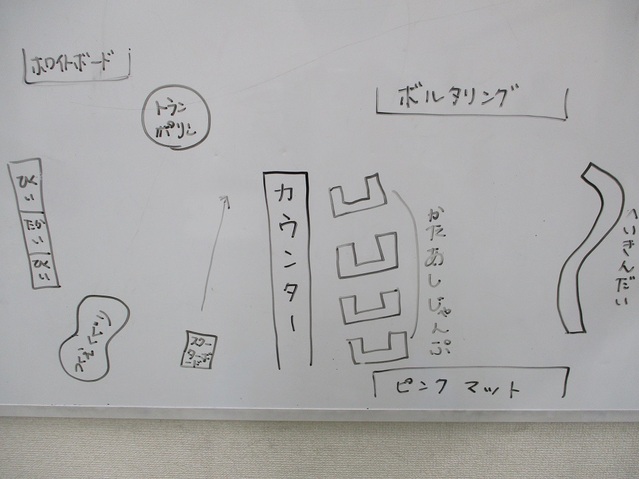 ホワイトボード
トラン
ポリン
ボルタリング
ひくい
たかい
ひくい
カウンター
かたあしじゃんぷ
へいきんだい
スクー
ピンクマット